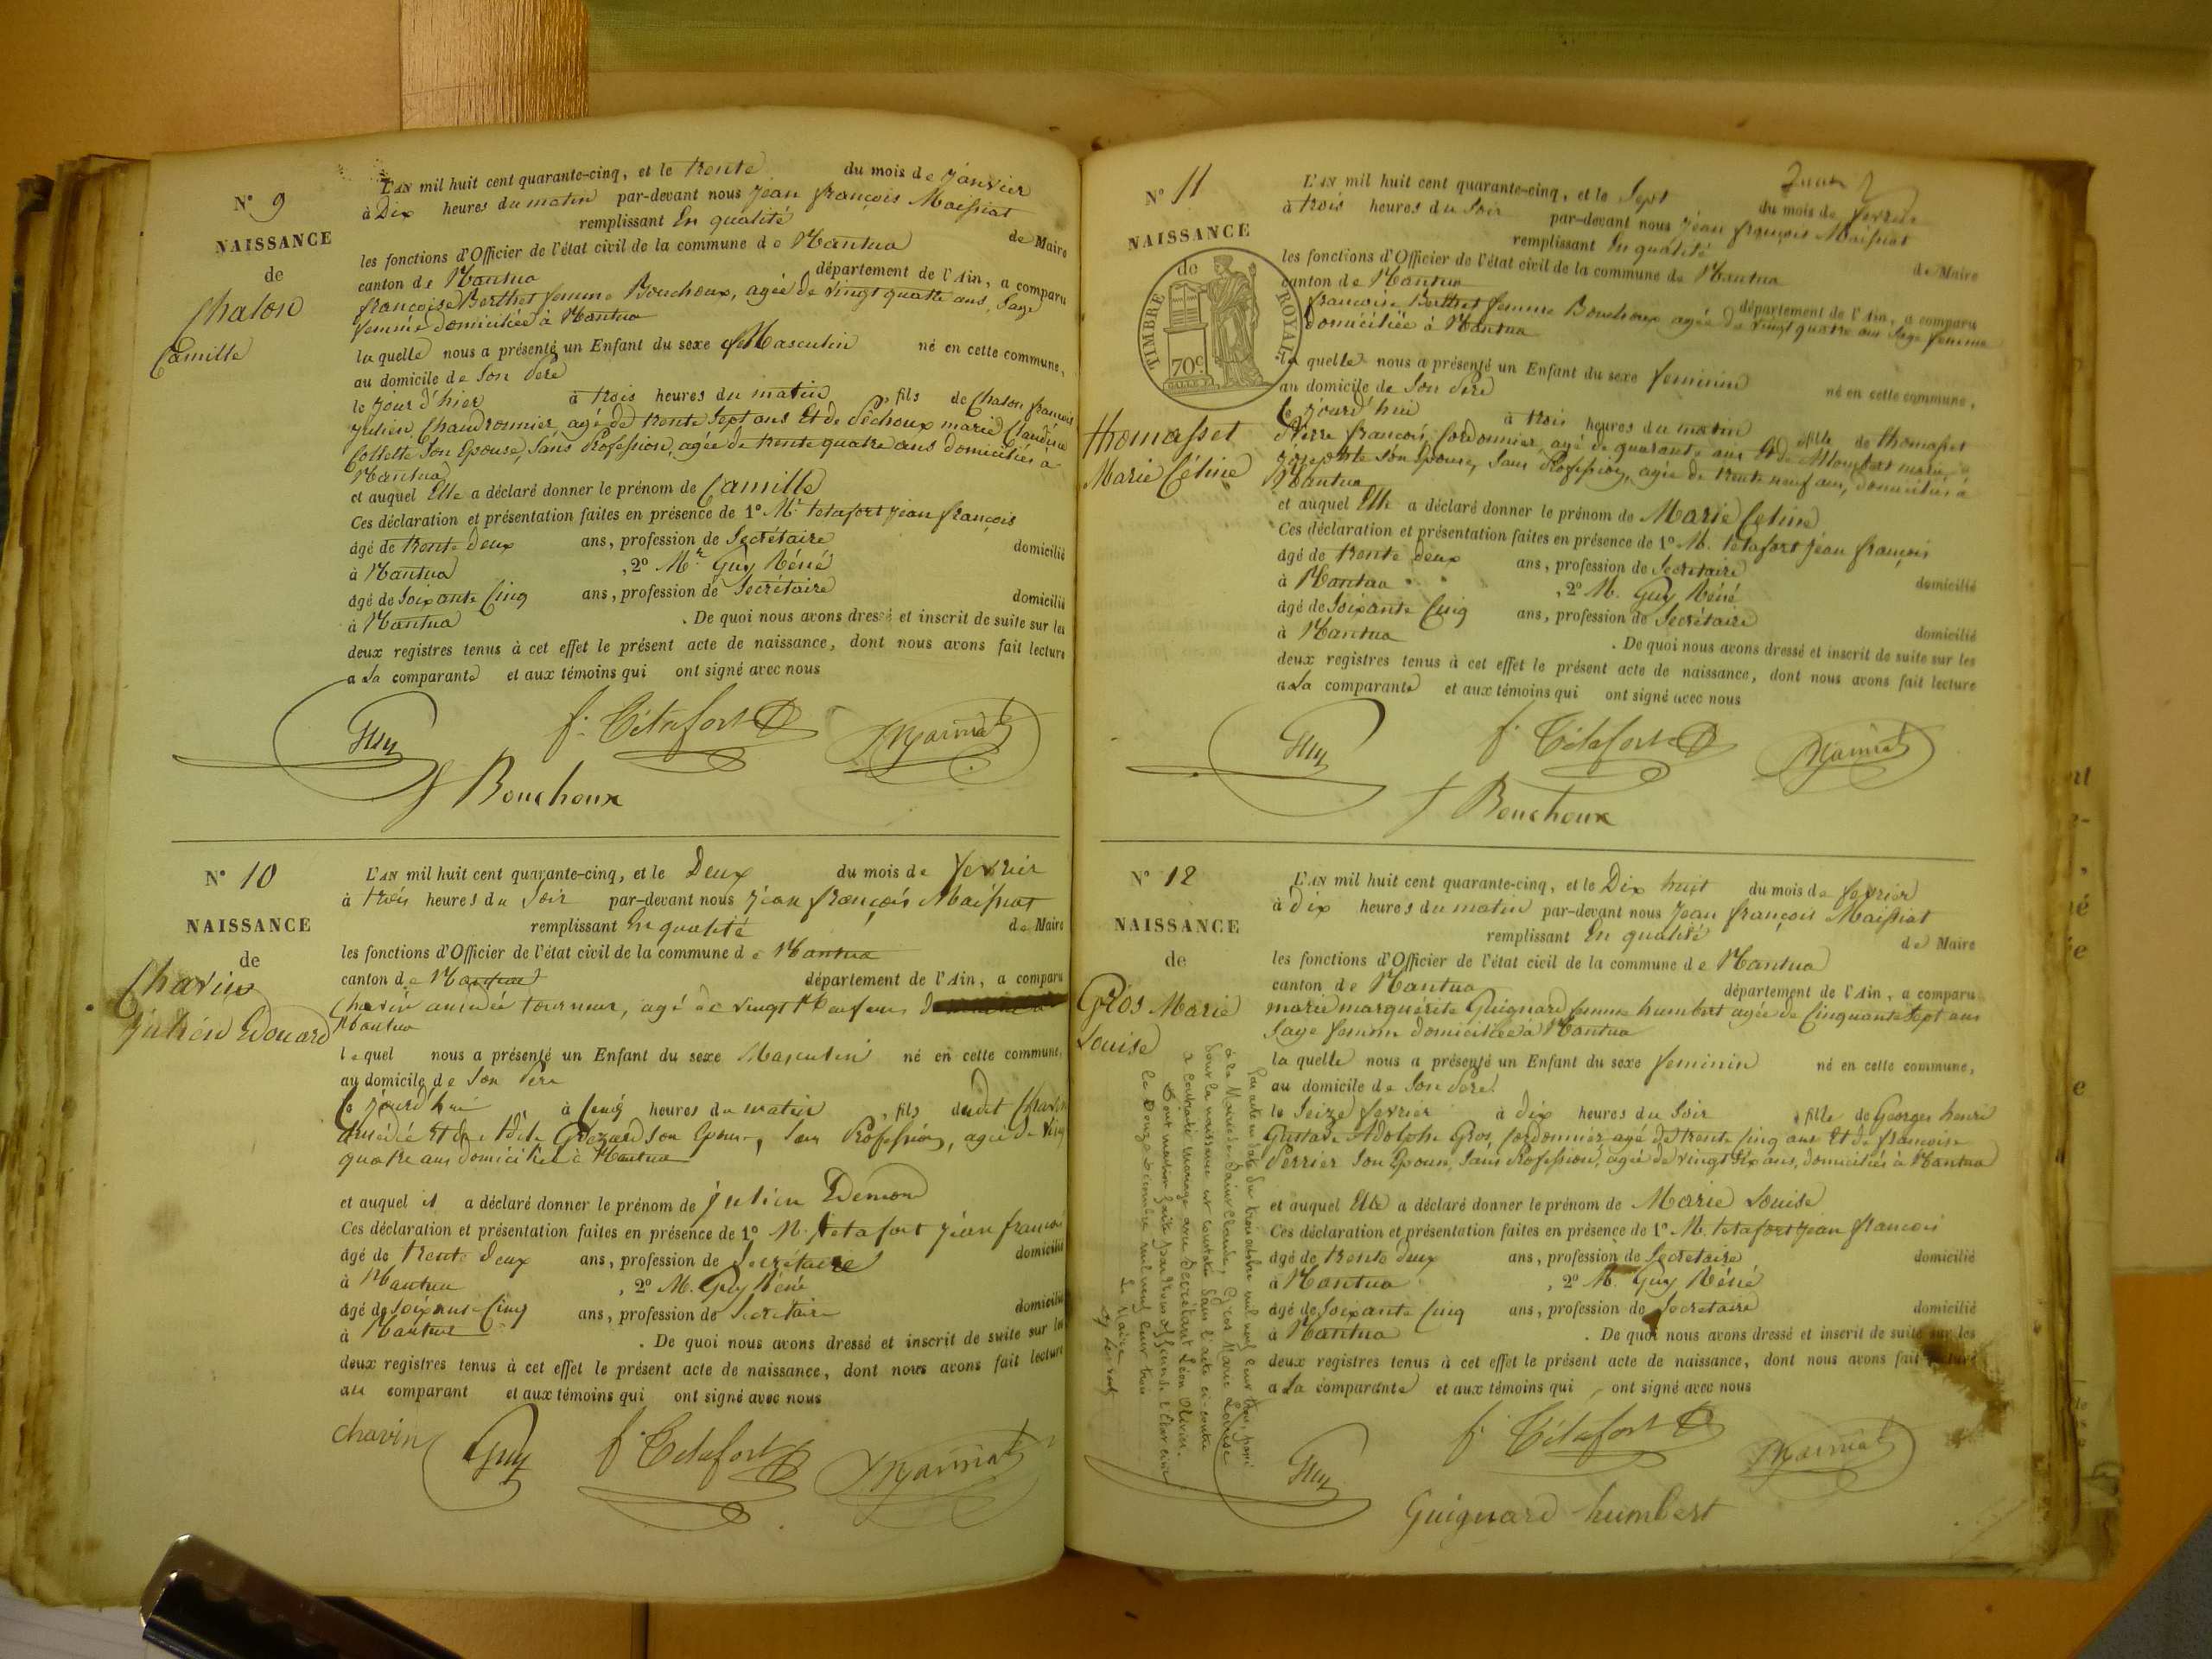 N° 9
NAISSANCE
de
Chalon
Camille
L'AN mil huit cent quarante-cinq, et le trente du mois de Janvier
à Dix heures du matin par-devant nous Jean françois Maissiat
remplissant En qualité de Maire
les fonctions d'Officier de l'état civil de la commune de Nantua
canton de Nantua département de l'Ain, a comparu
françoise Berthet femme Bouchoux, agée de vingt quatre ans, Sage
femme domiciliée à Nantua
laquelle nous a présenté un Enfant du sexe Masculin né en cette commune,
au domicile de Son Père
le Jour d'hier à trois heures du matin, fils de Chalon françois
Julien, Chaudronnier, agé de trente Sept ans Et de Péchoux marie Claudine
Collette Son Epouse, Sans Profession, agée de trente quatre ans domiciliés à
Nantua
et auquel Elle a déclaré donner le prénom de Camille
Ces déclaration et présentation faites en présence de 1° Mr tetafort Jean françois
âgé de trente deux ans, profession de Secrétaire domicilié
à Nantua, 2° Mr Guy Réné
âgé de Soixante Cinq ans, profession de Secrétaire domicilié
à Nantua. De quoi nous avons dressé et inscrit de suite sur les
deux registres tenus à cet effet le présent acte de naissance, dont nous avons fait lecture
a La comparante et aux témoins qui ont signé avec nous
Guy f. Tétafort Maissiat
f Bouchoux
N° 10
NAISSANCE
de
Chavin
Julien Edouard
L'AN mil huit cent quarante-cinq, et le Deux du mois de fevrier
à trois heures du Soir par-devant nous Jean françois Maissiat
remplissant En qualité de Maire
les fonctions d'Officier de l'état civil de la commune de Nantua
canton de Nantua département de l'Ain, a comparu
Chavin amédée tourneur, agé de vingt Neuf ans
Nantua
lequel nous a présenté un Enfant du sexe Masculin né en cette commune,
au domicile de Son Père
Ce Jourd'hui à Cinq heures du matin, fils dudit Chavin
amédée Et de Adele Son Epouse, Sans Profession, agée de vingt
quatre ans domiciliés à Nantua
et auquel il a déclaré donner le prénom de Julien Edmond
Ces déclaration et présentation faites en présence de 1° M. tetafort Jean françois
âgé de trente deux ans, profession de Secrétaire domicilié
à Nantua, 2° M. Guy Réné
âgé de Soixante Cinq ans, profession de Secretaire domicilié
à Nantua. De quoi nous avons dressé et inscrit de suite sur les
deux registres tenus à cet effet le présent acte de naissance, dont nous avons fait lecture
au comparant et aux témoins qui ont signé avec nous
Chavin Guy f. Tétafort Maissiat
N° 11
NAISSANCE
de
TIMBRE ROYAL
70 c
thomasset
Marie Céline
L'AN mil huit cent quarante-cinq, et le Sept du mois de fevrier
à trois heures du Soir par-devant nous Jean françois Maissiat
remplissant En qualité de Maire
les fonctions d'Officier de l'état civil de la commune de Nantua
canton de Nantua département de l'Ain, a comparu
françoise Berthet femme Bouchoux agée De vingt quatre ans Sage femme
domiciliée à Nantua
la quelle nous a présenté un Enfant du sexe feminin né en cette commune,
au domicile de Son Père
Ce Jourd'hui à trois heures du matin, fille de thomasset
Pierre françois, Cordonnier, agé de quarante ans Et de Montbert marie
Josephte Son Epouse, Sans Profession, agée de trente neuf ans, domiciliés à
Nantua
et auquel Elle a déclaré donner le prénom de Marie Celine
Ces déclaration et présentation faites en présence de 1° M. tetafort Jean françois
âgé de trente deux ans, profession de Secretaire domicilié
à Nantua, 2° M. Guy Réné
âgé de Soixante Cinq ans, profession de Secrétaire domicilié
à Nantua. De quoi nous avons dressé et inscrit de suite sur les
deux registres tenus à cet effet le présent acte de naissance, dont nous avons fait lecture
a La comparante et aux témoins qui ont signé avec nous
Guy f. Tétafort Maissiat
f Bouchoux
N° 12
NAISSANCE
de
Gros Marie
Louise
L'AN mil huit cent quarante-cinq, et le Dix huit du mois de fevrier
à dix heures du matin par-devant nous Jean françois Maissiat
remplissant En qualité de Maire
les fonctions d'Officier de l'état civil de la commune de Nantua
canton de Nantua département de l'Ain, a comparu
marie marguérite Guignard femme humbert agée de Cinquante Sept ans
Sage femme domiciliée à Nantua
la quelle nous a présenté un Enfant du sexe feminin né en cette commune,
au domicile de Son Père
le Seize fevrier à dix heures du Soir, fille de Georges henri
Gustave Adolphe Gros, Cordonnier, agé de trente Cinq ans Et de françoise
Perrier Son Epouse, Sans Profession, agée de vingt Six ans, domiciliés à Nantua
et auquel Elle a déclaré donner le prénom de Marie Louise
Ces déclaration et présentation faites en présence de 1° M. tetafort Jean françois
âgé de trente deux ans, profession de Secretaire domicilié
à Nantua, 2° M. Guy Réné
âgé de Soixante Cinq ans, profession de Secretaire domicilié
à Nantua. De quoi nous avons dressé et inscrit de suite sur les
deux registres tenus à cet effet le présent acte de naissance, dont nous avons fait lecture
a La comparante et aux témoins qui ont signé avec nous
Guy f. Tétafort Maissiat
Guignard humbert
Par acte en date du trois octobre mil neuf cent trois, passé
à la Mairie de Saint Claude, Gros Marie Louise
dont la naissance est constatée dans l'acte ci-contre
a contracté mariage avec Secrétant Léon Olivier.
Dont mention faite par Nous
Le Douze Decembre mil neuf cent trois
Le Maire